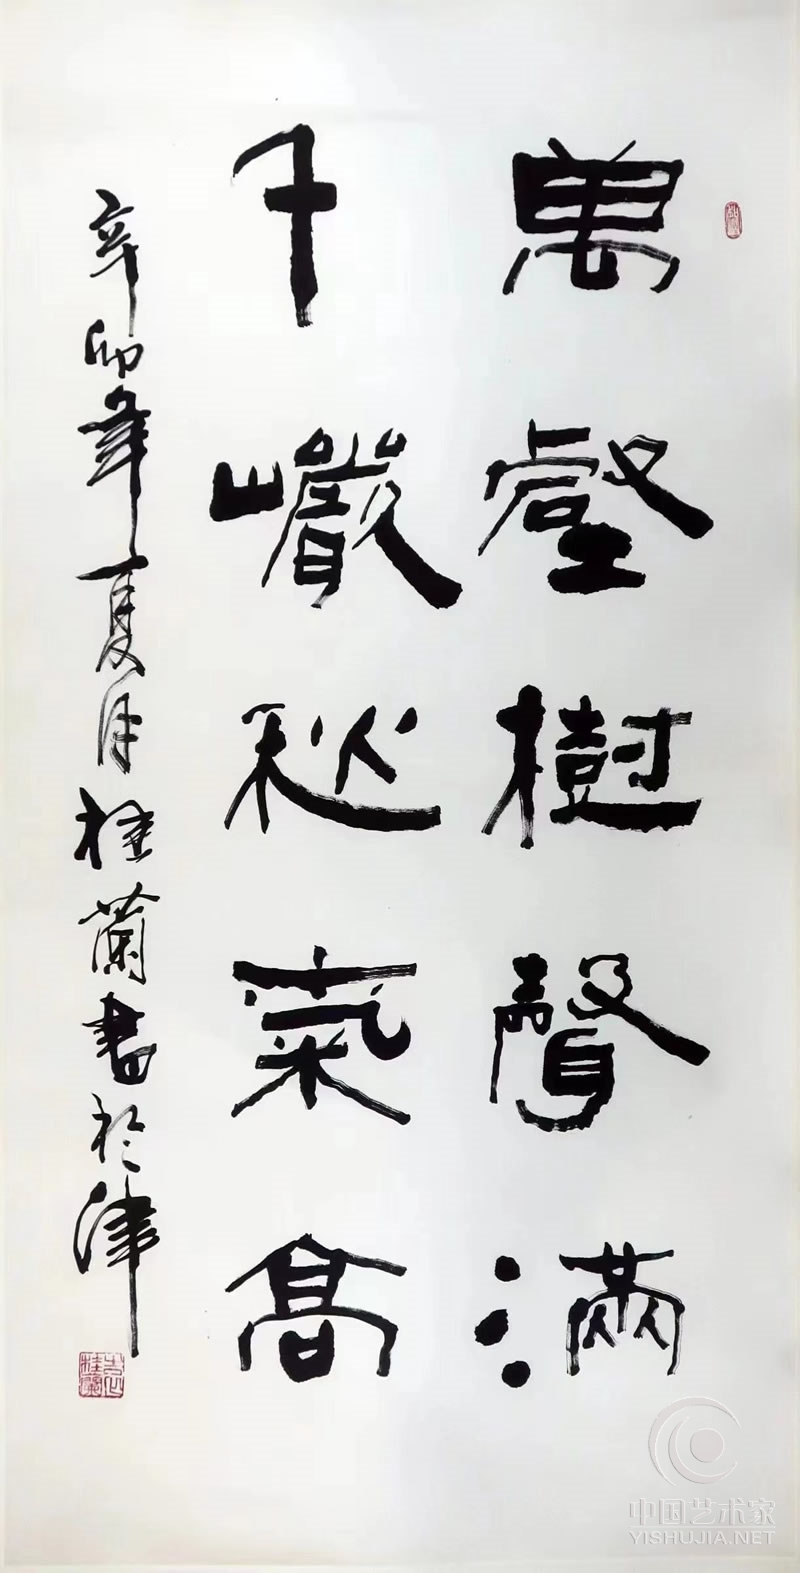 萬壑樹聲滿
千巖秋氣高
辛卯年夏月桂蘭書於津
中国艺术家
YISHUJIA.NET